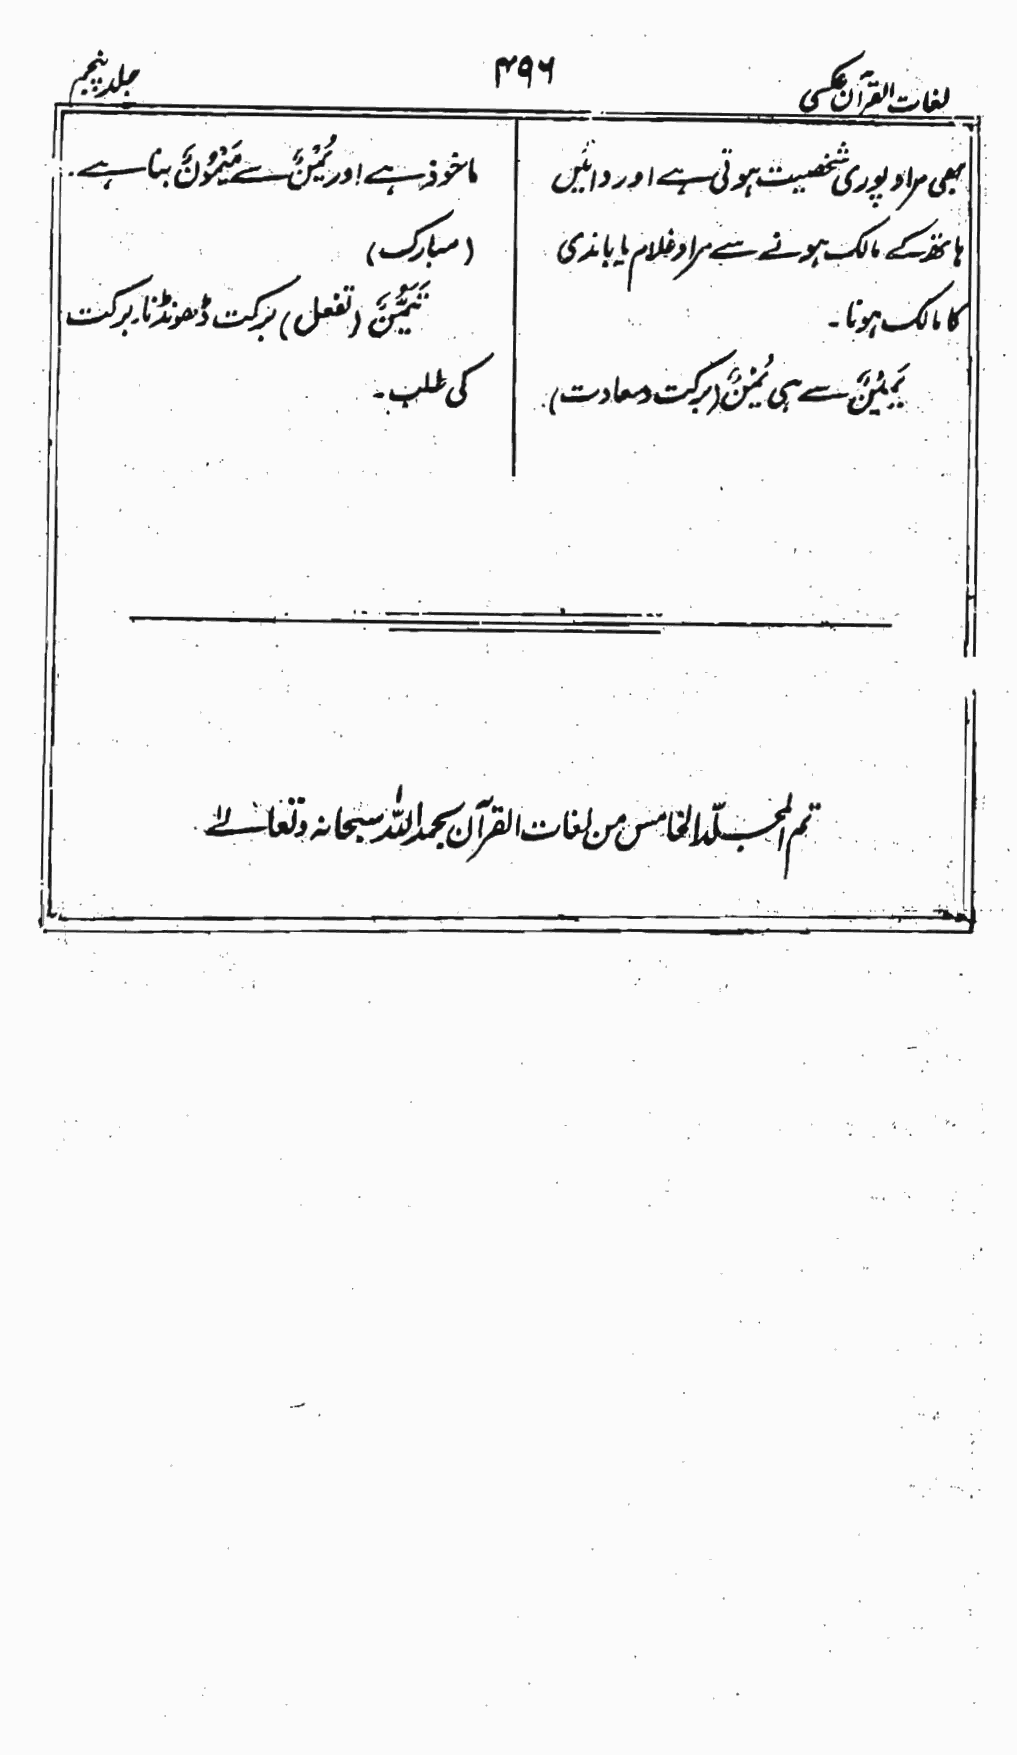 لغات القرآن عکسی
۴۹۶
جلد پنجم
بھی مراد پوری شخصیت ہوتی ہے اور دائیں
ہاتھ کے مالک ہونے سے مراد غلام یا باندی
کا مالک ہونا۔
یَمِیْنٌ سے ہی یُمْنٌ (برکت و سعادت)
ماخوذ ہے اور یُمْنٌ سے مَیْمُوْنٌ بنا ہے۔
(مبارک)
تَیَمُّنٌ (تفعل) برکت ڈھونڈنا۔ برکت
کی طلب۔
تم المجلّد الخامس من لغات القرآن بحمد اللّٰہ سبحانہ وتعالےٰ